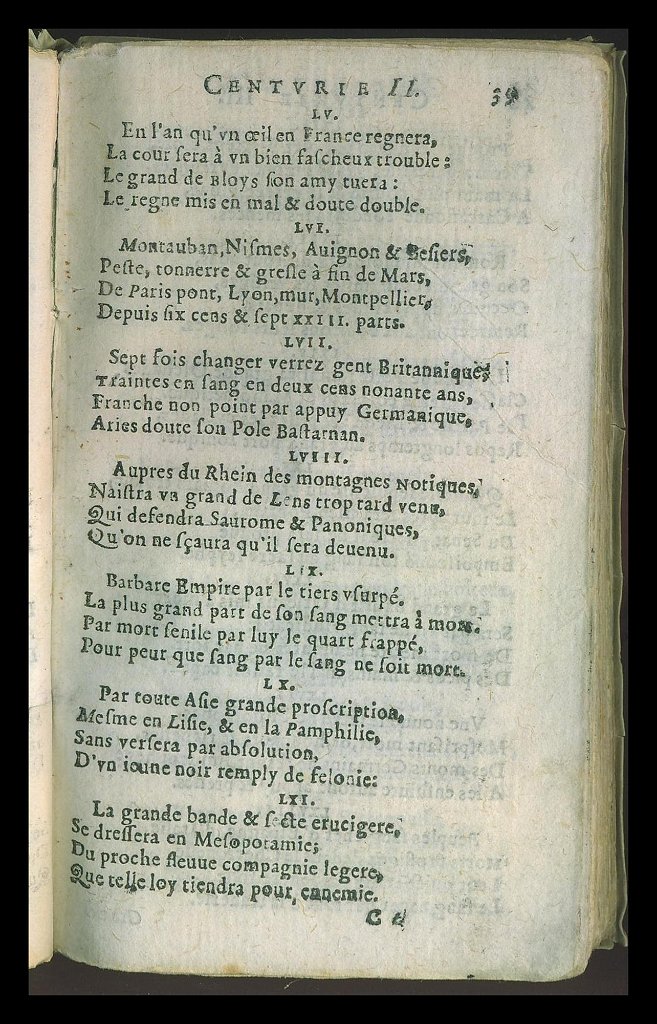 CENTVRIE II.
39
LV.
En l'an qu'vn œil en France regnera,
La cour ſera à vn bien faſcheux trouble:
Le grand de Bloys ſon amy tuera:
Le regne mis en mal & doute double.
LVI.
Montauban, Niſmes, Auignon & Beſiers,
Peſte, tonnerre & greſle à fin de Mars,
De Paris pont, Lyon, mur, Montpellier,
Depuis ſix cens & ſept XXIII. parts.
LVII.
Sept fois changer verrez gent Britannique,
Traintes en ſang en deux cens nonante ans,
Franche non point par appuy Germanique,
Aries doute ſon Pole Baſtarnan.
LVIII.
Aupres du Rhein des montagnes Notiques,
Naiſtra vn grand de Lens trop tard venu,
Qui defendra Saurome & Panoniques,
Qu'on ne ſçaura qu'il ſera deuenu.
LIX.
Barbare Empire par le tiers vſurpé.
La plus grand part de ſon ſang mettra à mort.
Par mort ſenile par luy le quart frappé,
Pour peur que ſang par le ſang ne ſoit mort.
LX.
Par toute Aſie grande proſcription,
Meſme en Liſie, & en la Pamphilie,
Sans verſera par abſolution,
D'vn ioune noir remply de felonie:
LXI.
La grande bande & ſecte erucigere,
Se dreſſera en Meſopotamie;
Du proche fleuue compagnie legere,
Que telle loy tiendra pour ennemie.
C